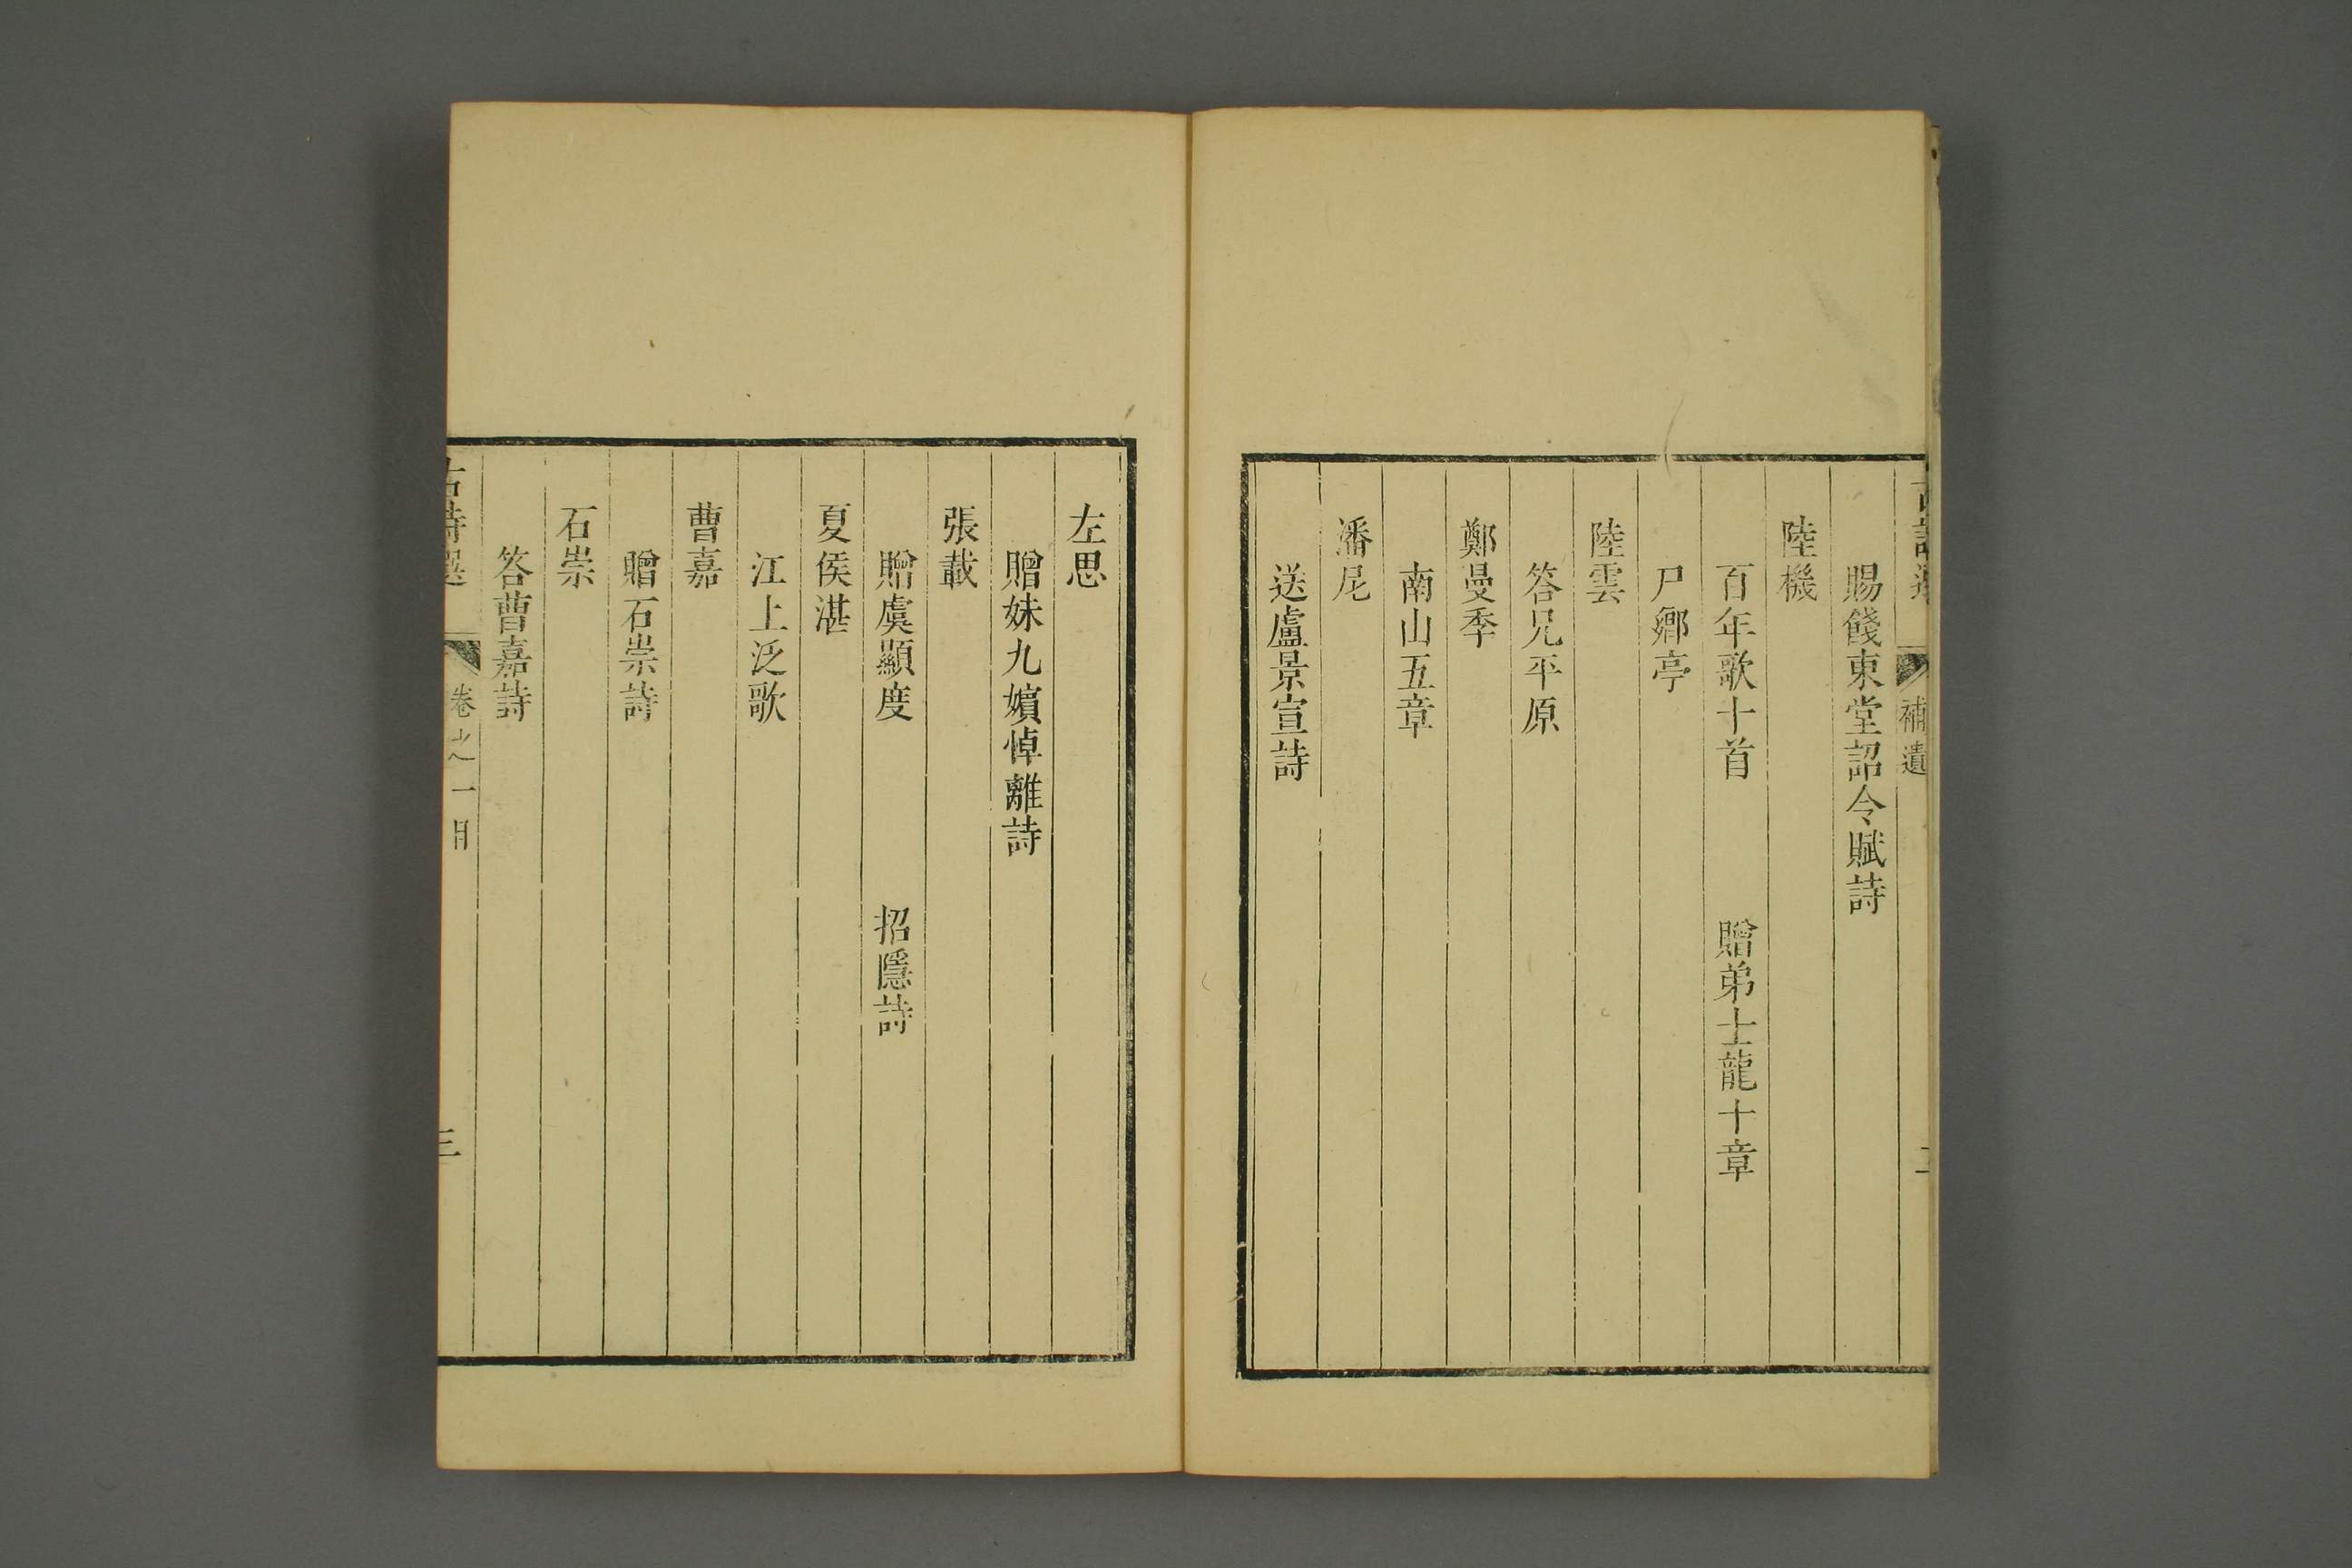 古詩選 補遺 二
賜餞東堂詔令賦詩
陸機
百年歌十首 贈弟士龍十章
尸鄉亭
陸雲
答兄平原
鄭曼季
南山五章
潘尼
送盧景宣詩
左思
贈妹九嬪悼離詩
張載
贈虞顯度 招隱詩
夏侯湛
江上泛歌
曹嘉
贈石崇詩
石崇
答曹嘉詩
古詩選 卷之一目 三